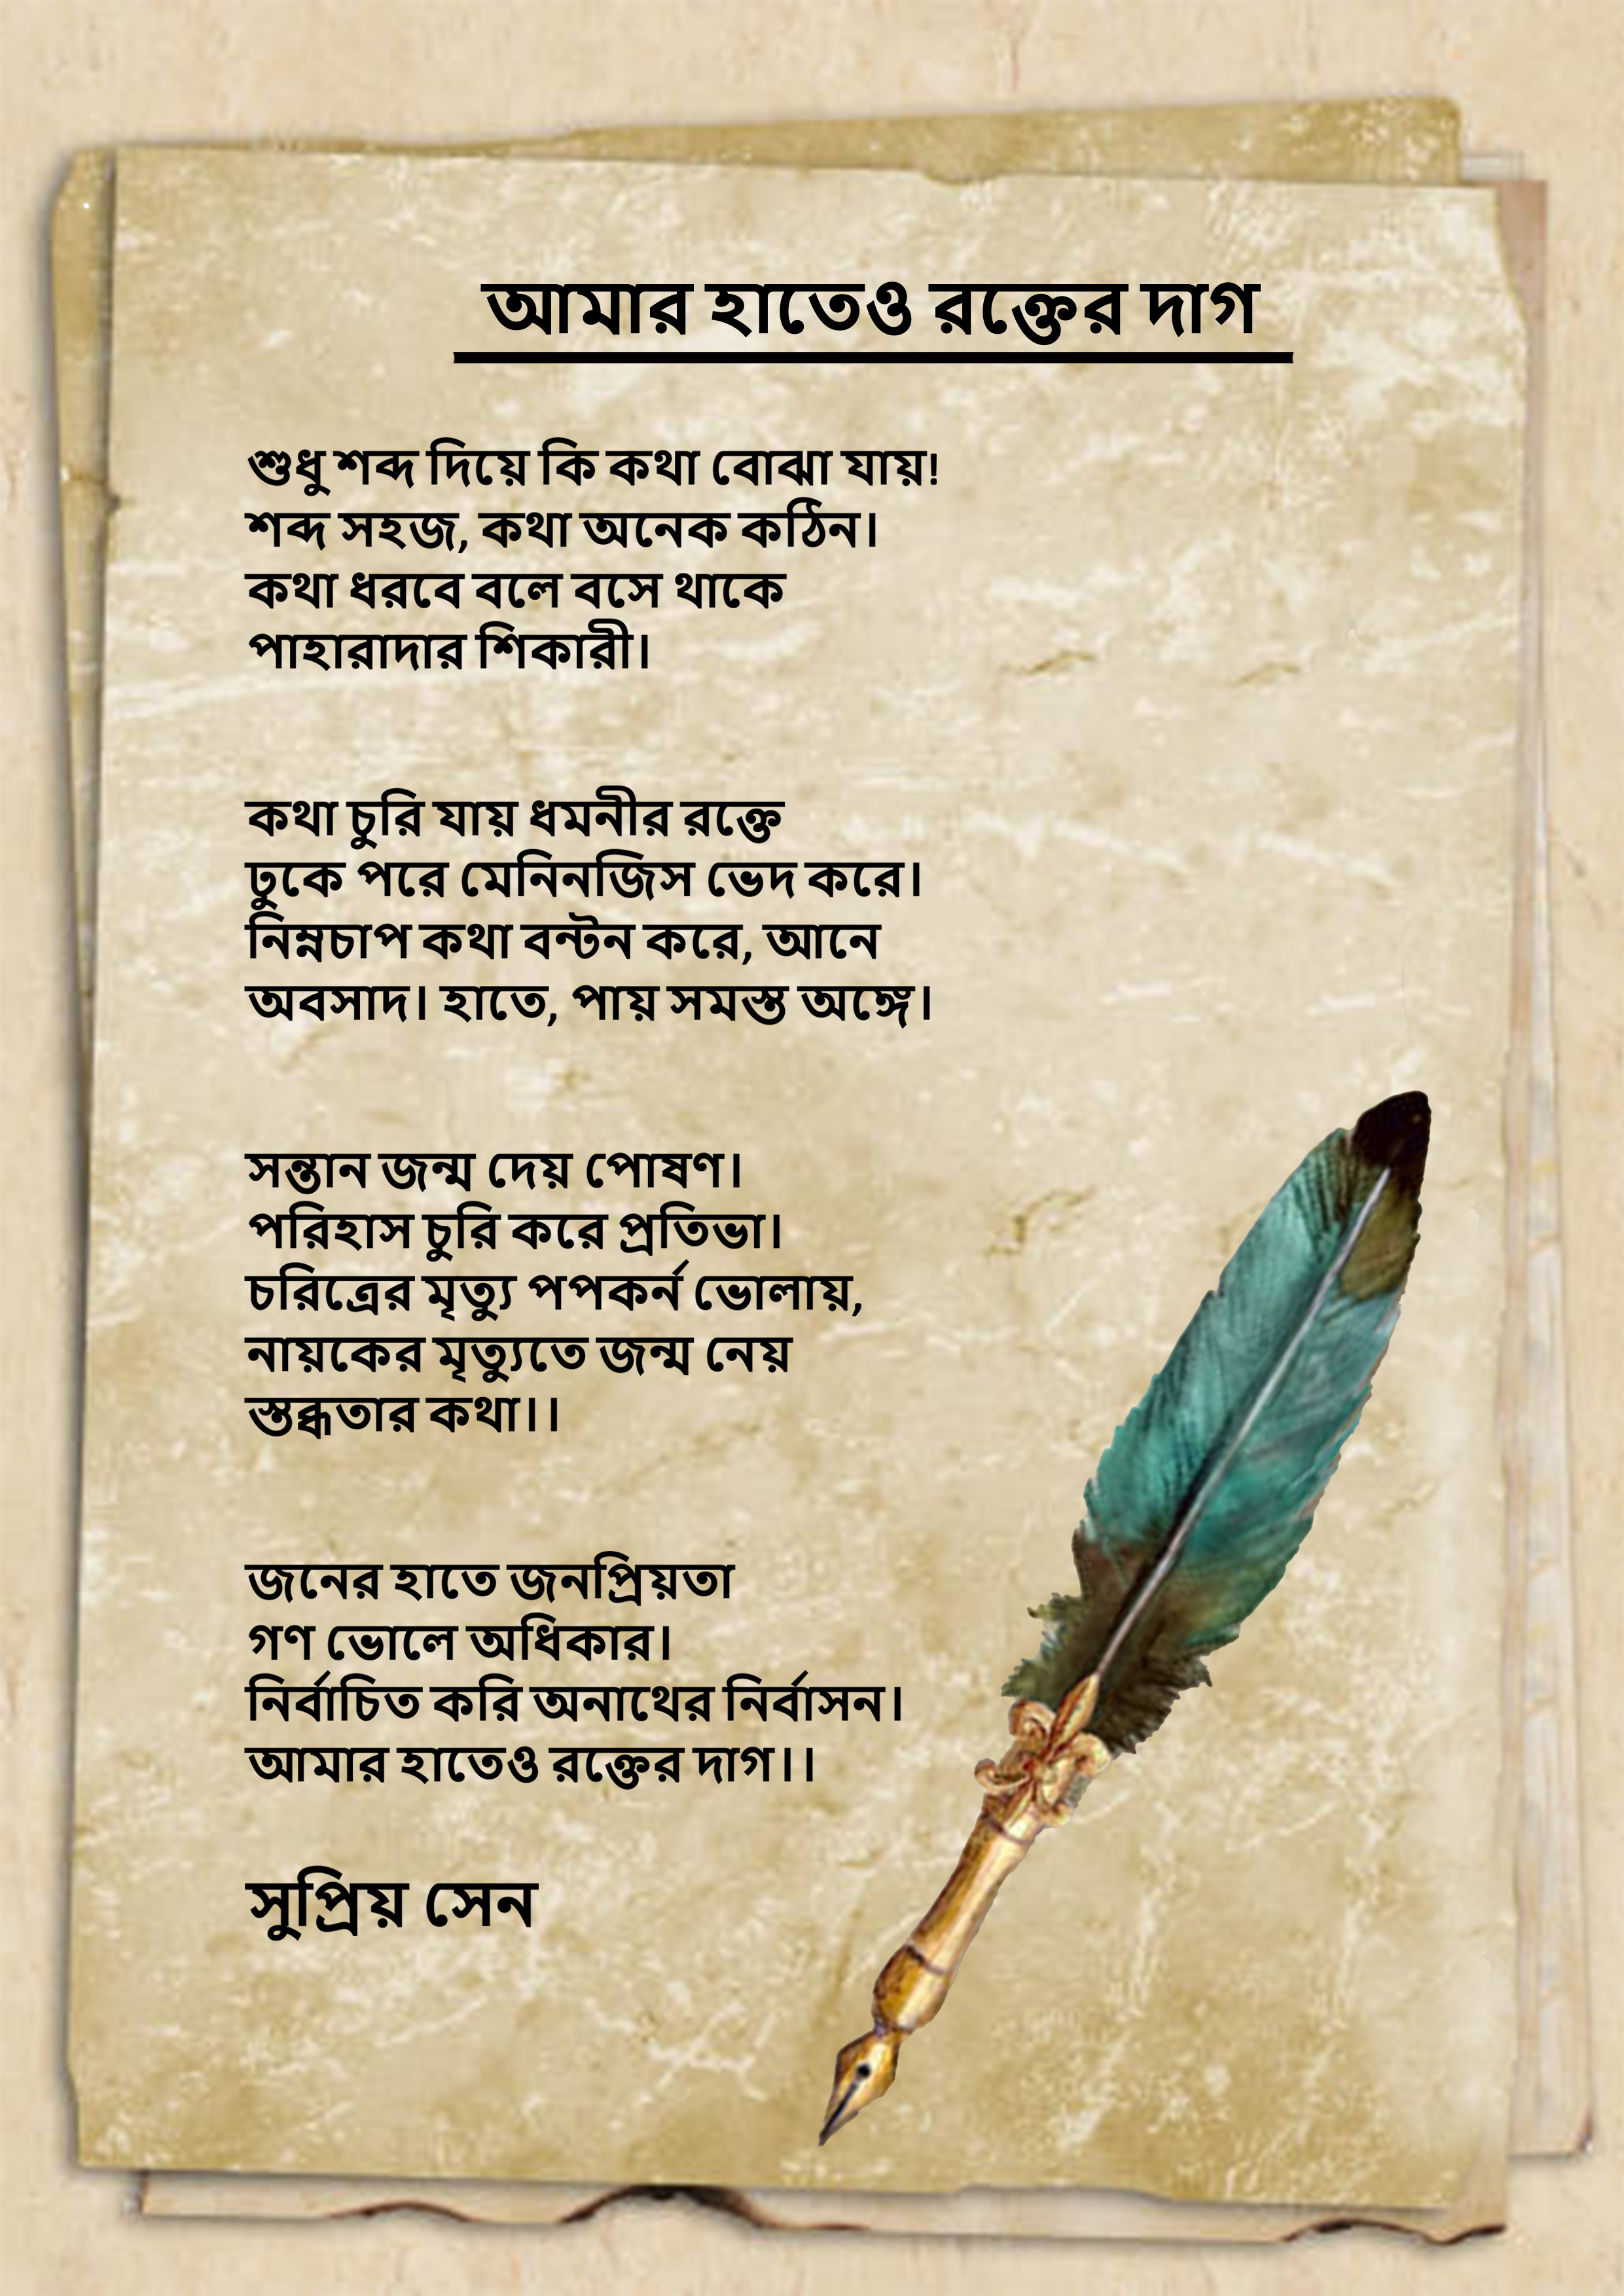 আমার হাতেও রক্তের দাগ
শুধু শব্দ দিয়ে কি কথা বোঝা যায়!
শব্দ সহজ, কথা অনেক কঠিন।
কথা ধরবে বলে বসে থাকে
পাহারাদার শিকারী।
কথা চুরি যায় ধমনীর রক্তে
ঢুকে পরে মেনিনজিস ভেদ করে।
নিম্নচাপ কথা বন্টন করে, আনে
অবসাদ। হাতে, পায় সমস্ত অঙ্গে।
সন্তান জন্ম দেয় পোষণ।
পরিহাস চুরি করে প্রতিভা।
চরিত্রের মৃত্যু পপকর্ন ভোলায়,
নায়কের মৃত্যুতে জন্ম নেয়
স্তব্ধতার কথা।।
জনের হাতে জনপ্রিয়তা
গণ ভোলে অধিকার।
নির্বাচিত করি অনাথের নির্বাসন।
আমার হাতেও রক্তের দাগ।।
সুপ্রিয় সেন